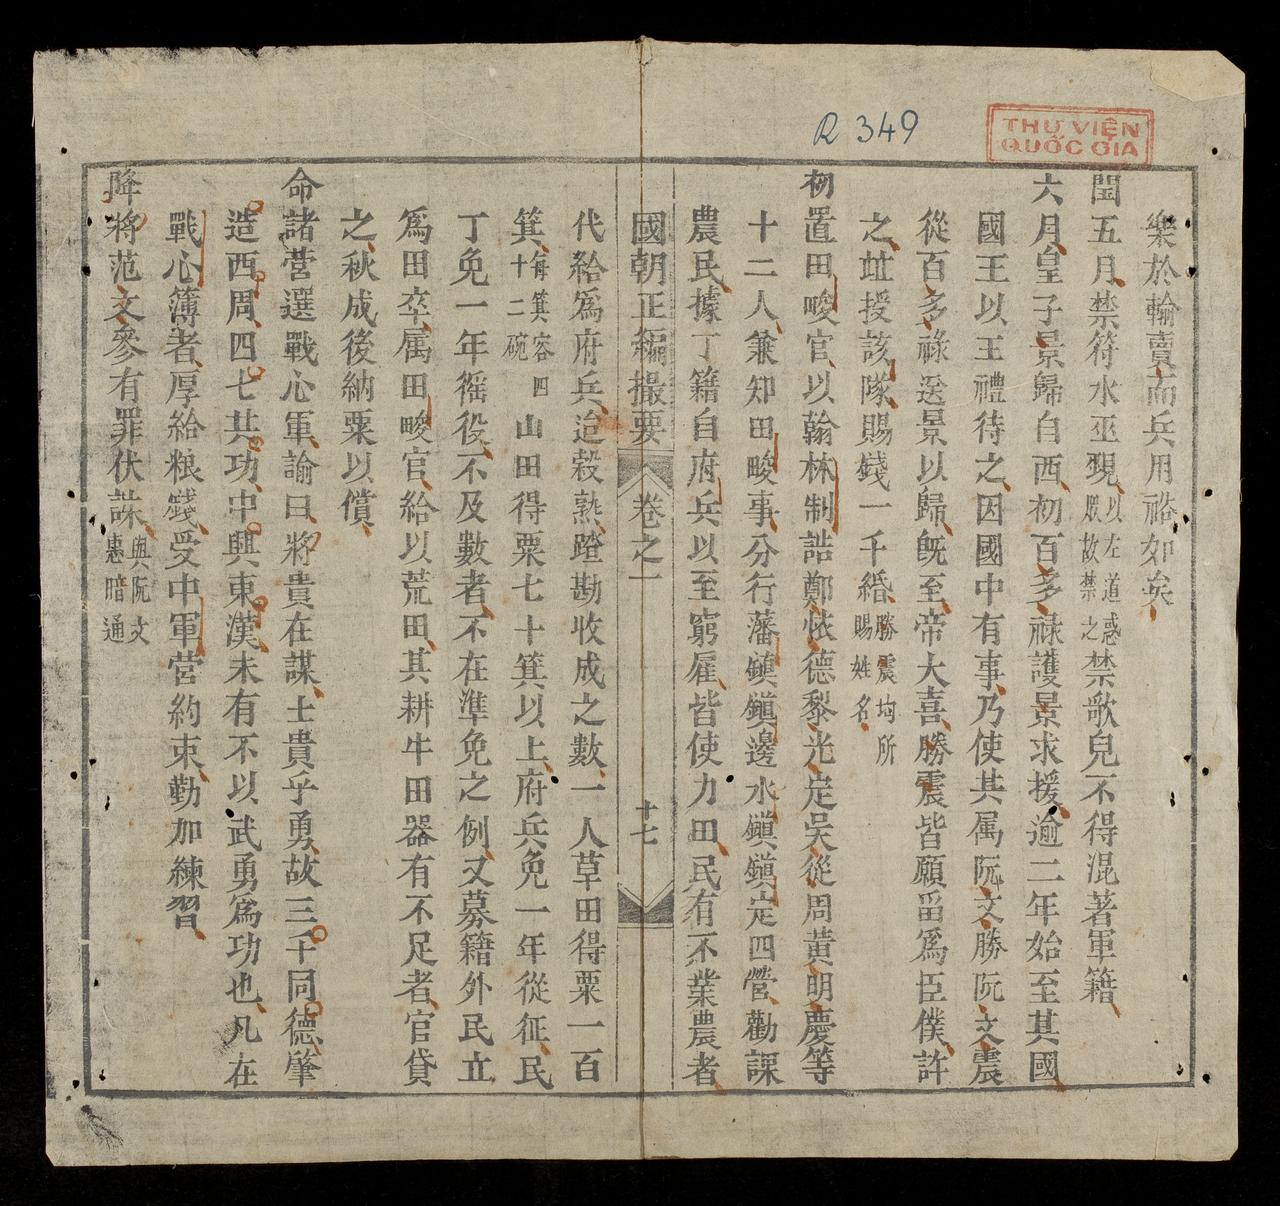 R 349
THƯ VIỆN
QUỐC GIA
樂於輸賣而兵用裕如矣
閏五月禁符水巫覡以左道惑眾故禁之禁歌兒不得混著軍籍
六月皇子景歸自西初百多祿護景求援逾二年始至其國
國王以王禮待之因國中有事乃使其属阮文勝阮文震
從百多祿送景以歸旣至帝大喜勝震皆願畱爲臣僕許
之並授該隊賜錢一千緡勝震均所賜姓名
初置田畯官以翰林制誥鄭懷德黎光定吳從周黃明慶等
十二人兼知田畯事分行藩鎮鎮邊永鎮鎮定四營勸課
農民據丁籍自府兵以至窮雇皆使力田民有不業農者
國朝正編撮要 卷之一 十七
代給爲府兵迨穀熟踏勘收成之數一人草田得粟一百
箕每箕容四十二碗山田得粟七十箕以上府兵免一年從征民
丁免一年徭役不及數者不在準免之例又募籍外民立
爲田卒属田畯官給以荒田其耕牛田器有不足者官貸
之秋成後納粟以償
命諸營選戰心軍諭曰將貴在謀士貴乎勇故三千同德肇
造西周四七共功中興東漢未有不以武勇爲功也凡在
戰心簿者厚給粮錢受中軍營約束勤加練習
降將范文參有罪伏誅與阮文惠暗通